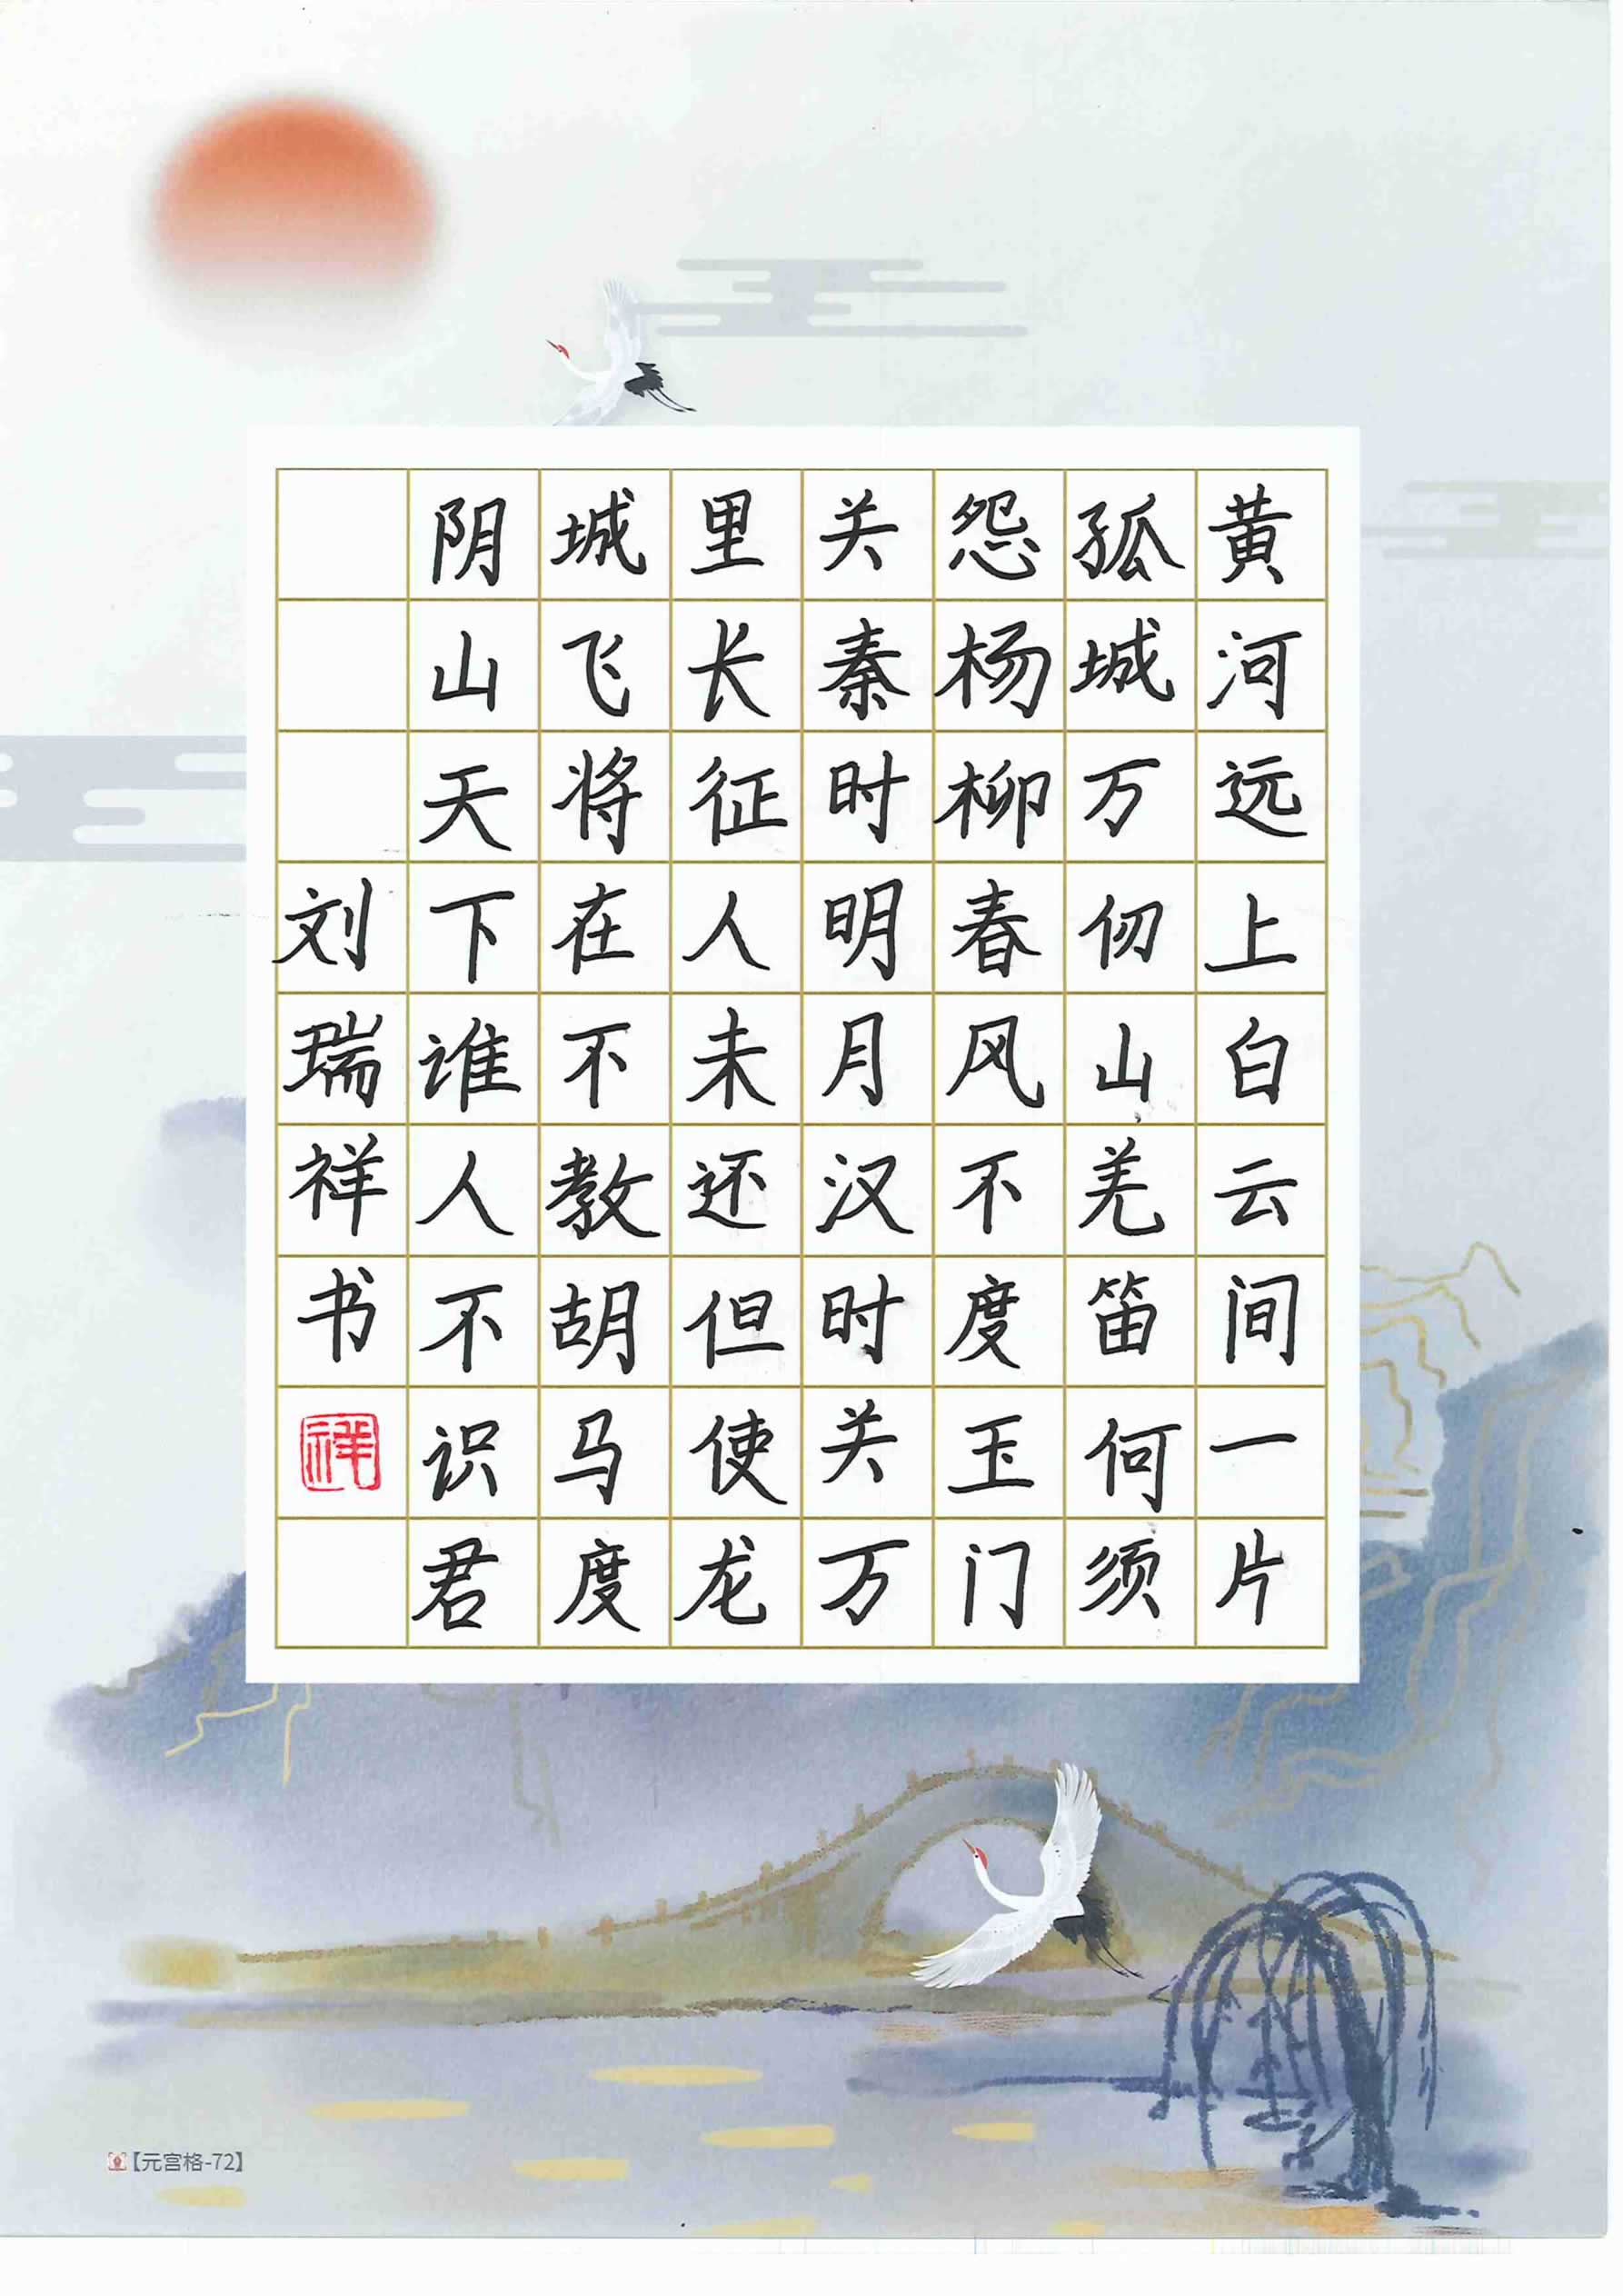 黄河远上白云间一片
孤城万仞山羌笛何须
怨杨柳春风不度玉门
关秦时明月汉时关万
里长征人未还但使龙
城飞将在不教胡马度
阴山天下谁人不识君
刘瑞祥书
祥
【元宫格-72】